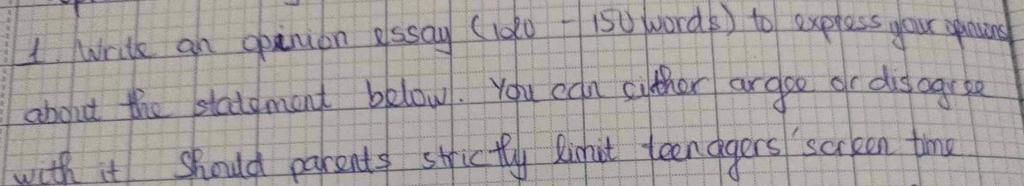 1. Write an opinion essay (120 - 150 words) to express your opinions
about the statement below. You can either argee or disagree
with it Should parents strictly limit teenagers' screen time